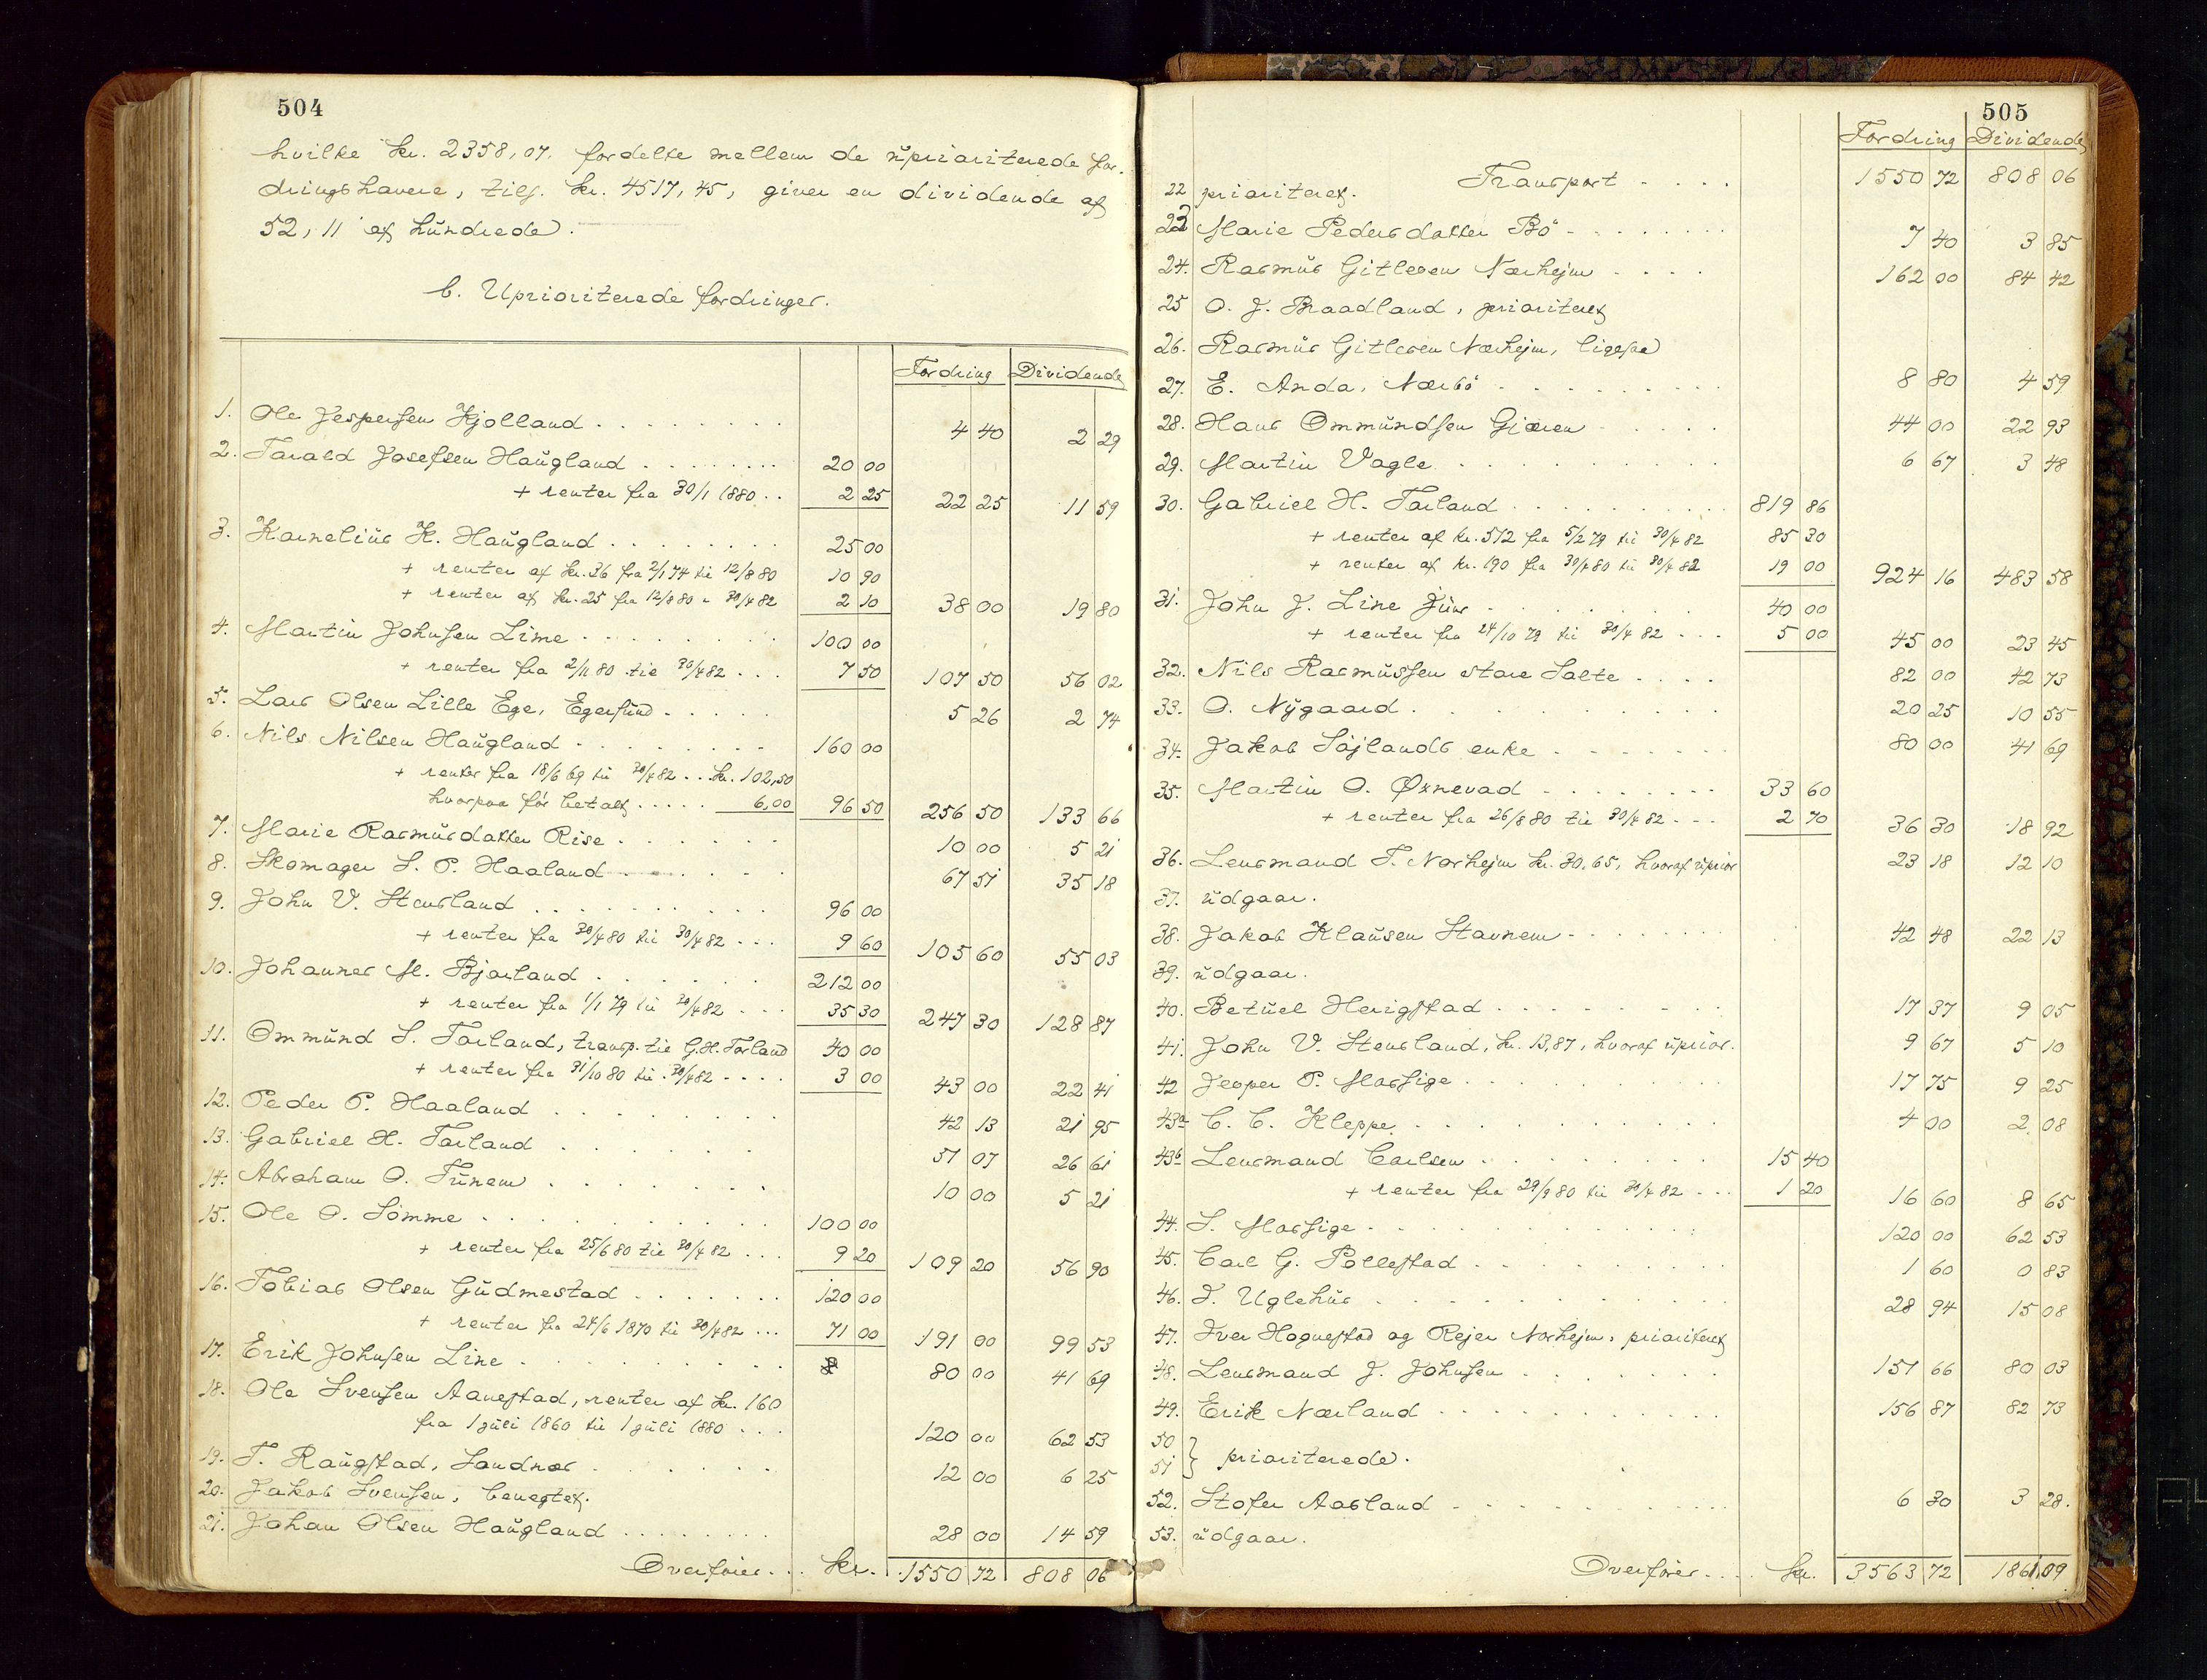 504
hvilke kr. 2358,07, fordelte mellem de uprioriterede for-
dringshavere, tils. kr. 4517,45, giver en dividende af
52,11 af hundrede.
b. Uprioriterede fordringer.
Fordring Dividende
1. Ole Jespersen Hjolland . . . 4 40 2 29
2. Tarald Josefsen Haugland . . . 20 00
+ renter fra 30/1 1880 . . 2 25 22 25 11 59
3. Kornelius K. Haugland . . . 25 00
+ renter af kr. 36 fra 2/1 74 til 12/8 80 10 90
+ renter af kr. 25 fra 12/8 80 " 30/4 82 2 10 38 00 19 80
4. Martin Johnsen Lime . . . 100 00
+ renter fra 2/11 80 til 30/4 82 . . . 7 50 107 50 56 02
5. Lars Olsen Lille Ege, Egersund . . . 5 26 2 74
6. Nils Nilsen Haugland . . . 160 00
+ renter fra 18/6 69 til 30/4 82 . . kr. 102,50
hvorpaa før betalt . . . 6,00 96 50 256 50 133 66
7. Marie Rasmusdatter Rise . . . 10 00 5 21
8. Skomager S. P. Haaland . . . 67 51 35 18
9. John V. Stensland . . . 96 00
+ renter fra 30/4 80 til 30/4 82 . . . 9 60 105 60 55 03
10. Johannes M. Bjorland . . . 212 00
+ renter fra 1/1 79 til 30/4 82 . . . 35 30 247 30 128 87
11. Ommund S. Torland, transp. til G. H. Torland 40 00
+ renter fra 31/10 80 til 30/4 82 . . . 3 00 43 00 22 41
12. Peder P. Haaland . . . 42 13 21 95
13. Gabriel H. Torland . . . 51 07 26 61
14. Abraham O. Tunem . . . 10 00 5 21
15. Ole O. Sømme . . . 100 00
+ renter fra 25/6 80 til 30/4 82 . . . 9 20 109 20 56 90
16. Tobias Olsen Gudmestad . . . 120 00
+ renter fra 24/6 1870 til 30/4 82 . . . 71 00 191 00 99 53
17. Erik Johnsen Line . . . 80 00 41 69
18. Ole Svensen Aanestad, renter af kr. 160
fra 1 juli 1860 til 1 juli 1880 . . . 120 00 62 53
19. T. Raugstad, Sandnæs . . . 12 00 6 25
20. Jakob Svensen, benegtet.
21. Johan Olsen Haugland . . . 28 00 14 59
Overføres . . . kr. 1550 72 808 06
505
Fordring Dividende
Transport . . . . 1550 72 808 06
22 prioriteret.
23 Marie Pedersdatter Bö . . . 7 40 3 85
24. Rasmus Gitlesen Nærhejm . . . . 162 00 84 42
25 O. J. Braadland, prioriteret
26. Rasmus Gitlesen Nærhejm, ligesaa
27. E. Anda, Nærbö . . . 8 80 4 59
28. Hans Ommundsen Gjæren . . . 44 00 22 93
29. Martin Vagle . . . 6 67 3 48
30. Gabriel H. Torland . . . 819 86
+ renter af kr. 572 fra 5/2 79 til 30/4 82 85 30
+ renter af kr. 190 fra 30/4 80 til 30/4 82 19 00 924 16 483 58
31. John J. Line Jun. . . . 40 00
+ renter fra 24/10 79 til 30/4 82 . . . 5 00 45 00 23 45
32. Nils Rasmussen store Salte . . . . 82 00 42 73
33. O. Nygaard . . . 20 25 10 55
34. Jakob Söjlands enke . . . 80 00 41 69
35. Martin O. Øxnevad . . . 33 60
+ renter fra 26/8 80 til 30/4 82 . . . 2 70 36 30 18 92
36. Lensmand T. Norhejm kr. 30,65, hvoraf uprior 23 18 12 10
37. udgaar.
38. Jakob Klausen Stavnem . . . 42 48 22 13
39. udgaar.
40. Betuel Herigstad . . . 17 37 9 05
41. John V. Stensland, kr. 13,87, hvoraf uprior. 9 67 5 10
42 Jesper P. Morsige . . . 17 75 9 25
43a C. C. Kleppe . . . 4 00 2 08
43b Lensmand Carlsen . . . 15 40
+ renter fra 29/9 80 til 30/4 82 . . . 1 20 16 60 8 65
44. S. Morsige . . . 120 00 62 53
45. Carl G. Pollestad . . . 1 60 0 83
46. T. Uglehus . . . 28 94 15 08
47. Iver Hognestad og Rejer Norhejm, prioriteret
48. Lensmand J. Johnsen . . . 151 66 80 03
49. Erik Nærland . . . 156 87 82 73
50
51 } prioriterede.
52. Stofer Aasland . . . 6 30 3 28.
53. udgaar.
Overføres . . . . kr. 3563 72 1861,09